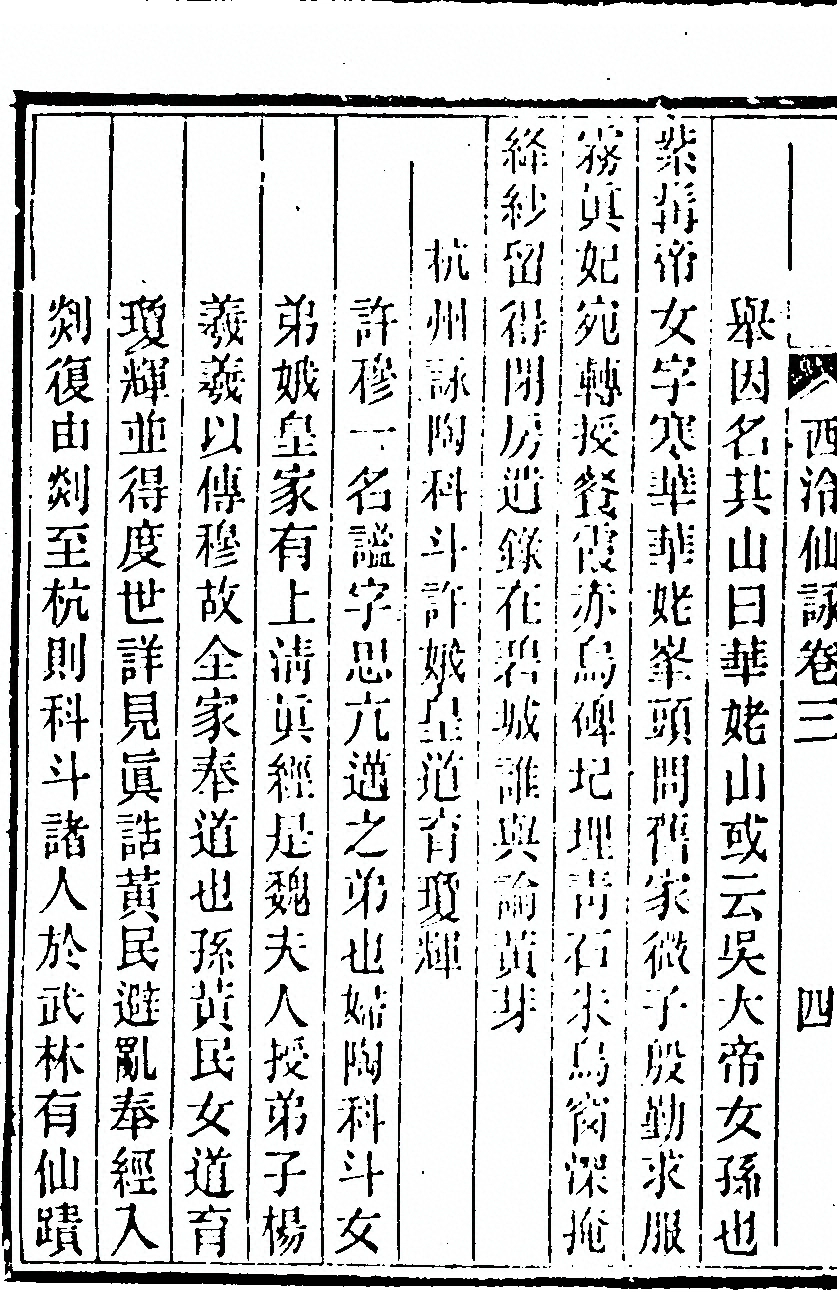 西泠仙詠卷三 四
舉因名其山曰華姥山或云吳大帝女孫也
紫褠帝女字寒華華姥峯頭問舊家微子殷勤求服
霧眞妃宛轉授餐霞赤烏碑圮埋靑石朱鳥窗深掩
絳紗留得閉房遺錄在碧城誰與論黃芽
杭州詠陶科斗許娥皇道育瓊輝
許穆一名謐字思亢邁之弟也婦陶科斗女
弟娥皇家有上淸眞經是魏夫人授弟子楊
羲羲以傳穆故全家奉道也孫黃民女道育
瓊輝並得度世詳見眞誥黃民避亂奉經入
剡復由剡至杭則科斗諸人於武林有仙蹟